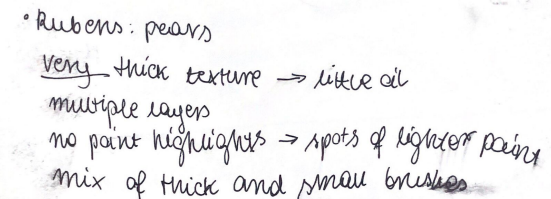 • Rubens: pears
very thick texture → little oil
multiple layers
no paint highlights → spots of lighter paint
mix of thick and small brushes